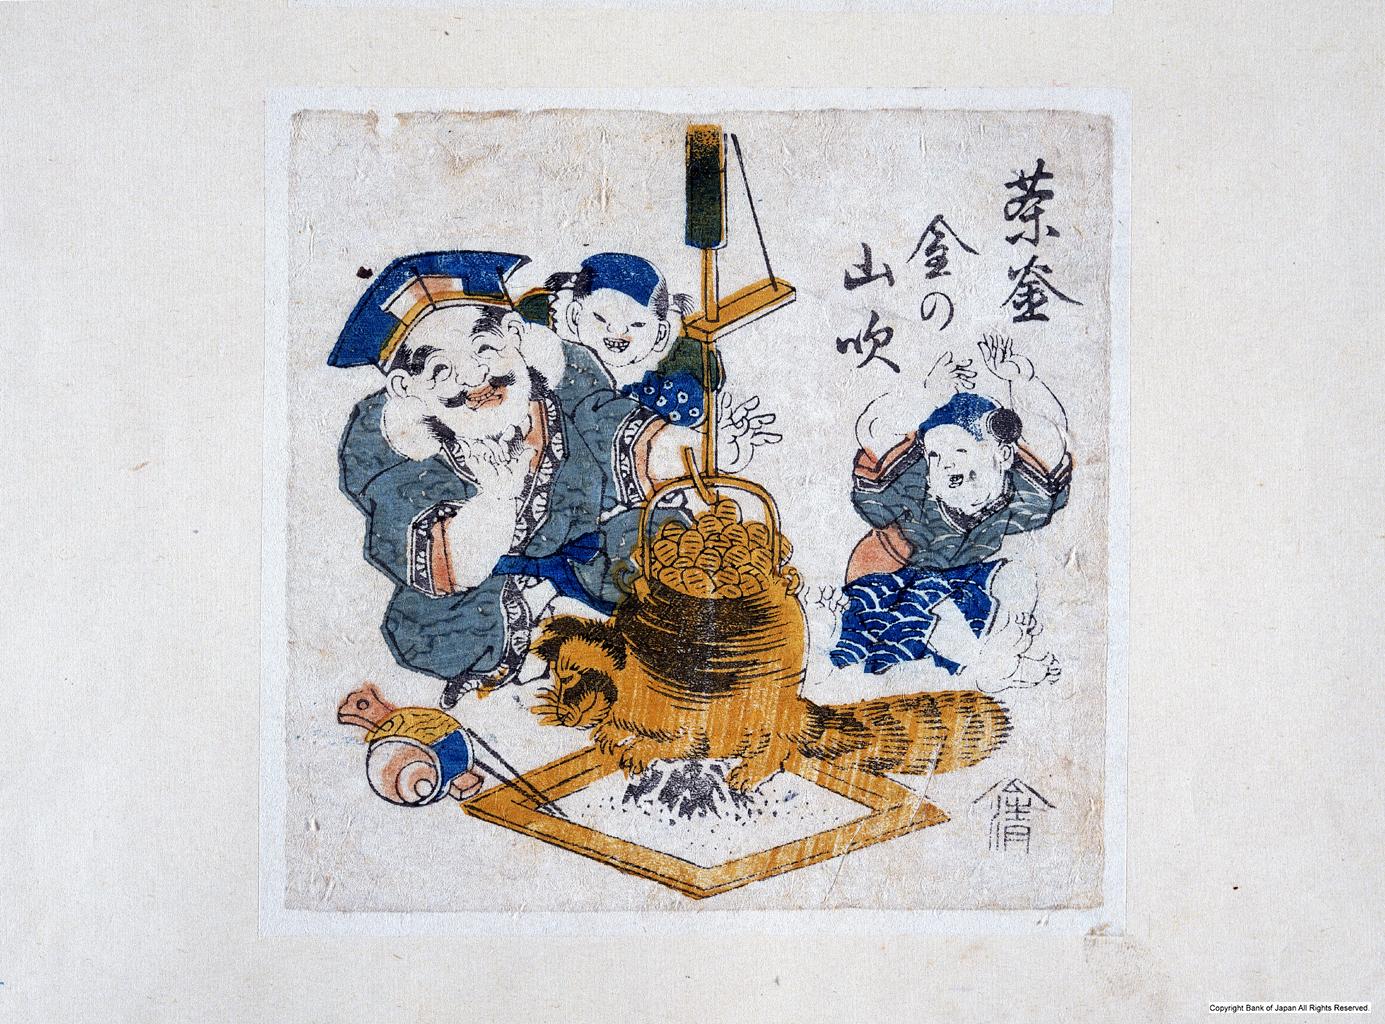 茶釜
金の
山吹
清
Copyright Bank of Japan All Rights Reserved.